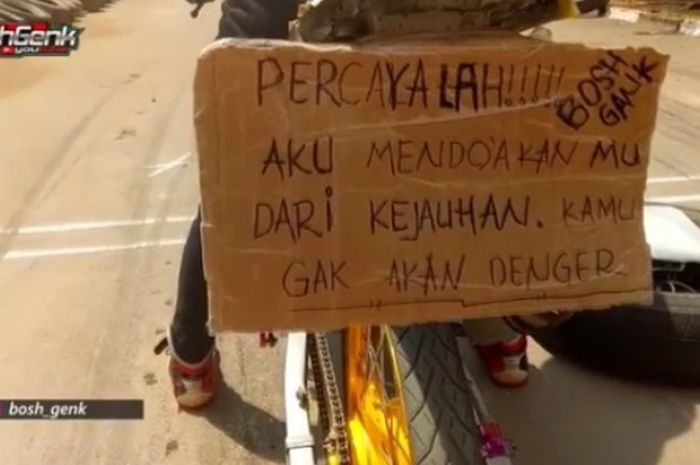 shGenk
youtube
PERCAYALAH!!!!!
BOSH
GANK
AKU MENDO'AKAN MU
DARI KEJAUHAN. KAMU
GAK AKAN DENGER
bosh_genk